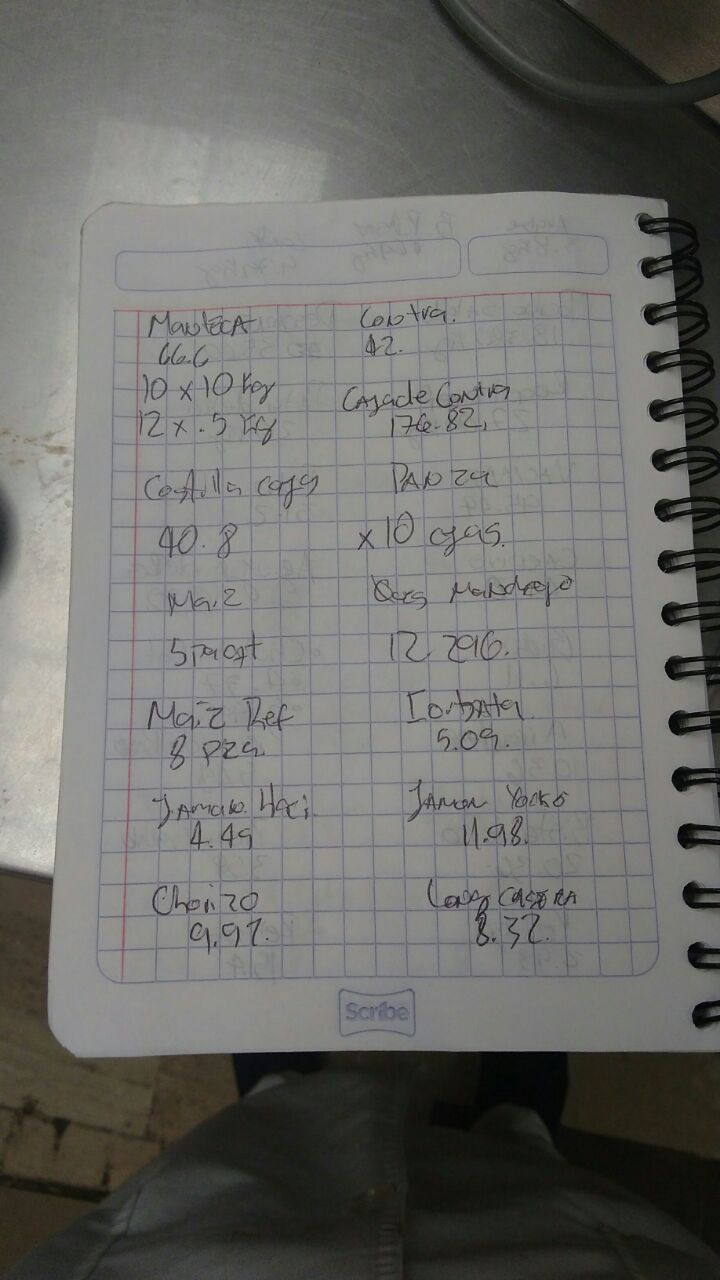 Manteca
66.6
10 x 10 Kg
12 x .5 Kg
Costilla caja
40.8
Maiz
5 paqt
Maiz Ref
8 pza
Jamon Haci.
4.49
Chorizo
9.97.
Contra.
42.
Caja de Contra
176.82,
Panza
x 10 cjas.
Manchego
12.296.
Corbata
5.09.
Jamon Yorko
11.98.
Long casera
8.32.
Scribe